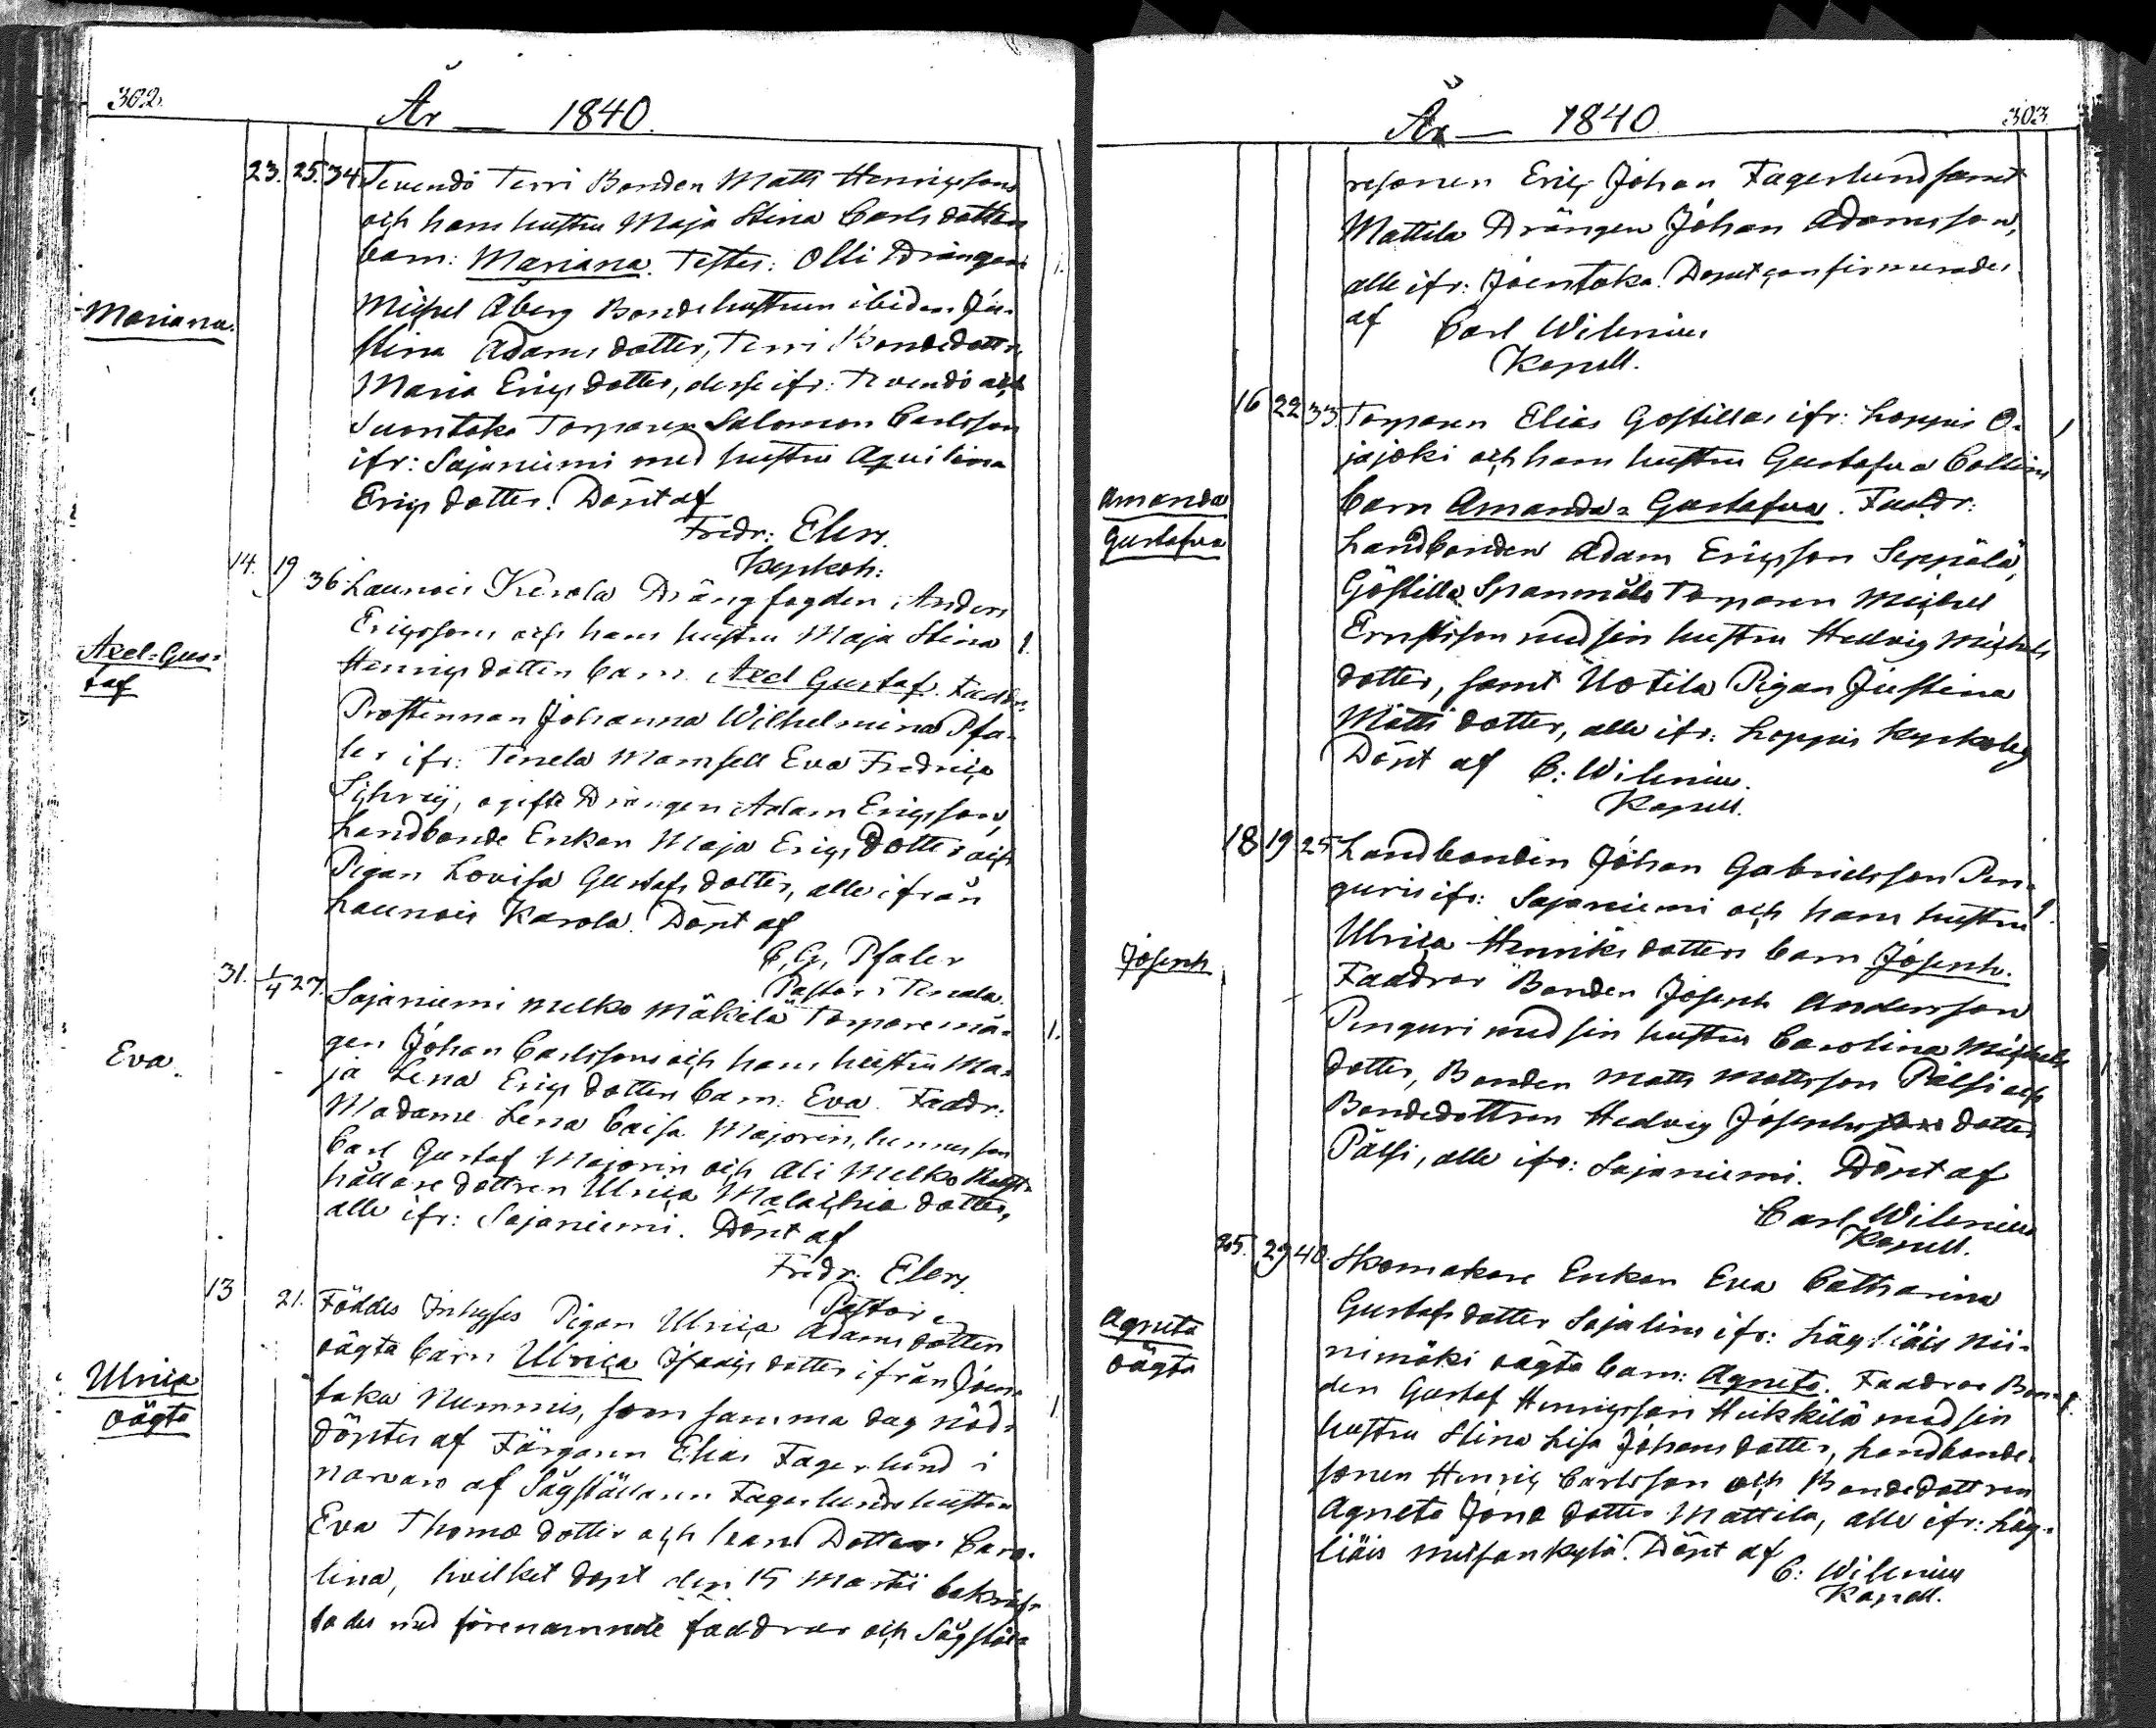 302.
År — 1840.
23. 25. 34. Tevendö Terri Bonden Matts Henricssons
och hans hustru Maja Stina Carls dotters
barn: Mariana. Testes: Olli Drängen 1.
Mariana.
Michel Åberg Bondehustrun ibidem Ju-
stina Adams dotter, Terri Bondedottren
Maria Erics dotter, desse ifr: Tevendö och
Suontaka Torparen Salomon Carlsson
ifr: Sajaniemi med hustru Aqvilina
Erics dotter. Döpt af
Fredr: Elers.
Kyrkoh:
14. 19 36. Launois Kerola Drängfogden Anders
Ericssons och hans hustru Maja Stina 1.
Axel=Gus=
taf
Henrics dotters barn. Axel Gustaf. Faddr:
Prostinnan Johanna Wilhelmina Pfa-
ler ifr: Tenela Mamsell Eva Fredrica
ogifte Drängen Adam Ericsson,
Landbonde Enkan Maja Erics dotter och
Pigan Lovisa Gustafs dotter, alle ifrån
Launois Karola. Döpt af
C. G. Pfaler
Pastor i Tenala.
31. 1/4 27. Sajaniemi Melko Mäkilä Torparemå-
gen Johan Carlssons och hans hustru Ma- 1.
Eva.
ja Lena Erics dotters barn: Eva. Faddr:
Madame Lena Caisa Majorin, hennes son
Carl Gustaf Majorin och Ali Melko
hållare dottren Ulrica Malachia dotter,
alle ifr: Sajaniemi. Döpt af
Fredr: Elers.
Pastor
13 21. Föddes Inhyses Pigan Ulrica Adams dotters
Ulrica
oägta
oägta barn Ulrica Isaacs dotter ifrån Joen-
taka Nummis, som samma dag nöd- 1
döptes af Färgaren Elias Fagerlund i
närvaro af Sågställaren Fagerlunds hustru
Eva Thomæ dotter och hans Dotter Caro-
lina, hvilket dopt den 15 Martii bekräf-
tades med förenämnde faddrar och Sågstäl-
År — 1840
303
resonen Eric Johan Fagerlund samt
Mattila Drängen Johan Adamsson,
alle ifr: Joentaka. Doput confirmerades
af Carl Wilenius
Kapell.
16 22 33. Torparen Elias Gostillas ifr: Loppis O-
jajoki och hans hustru Gustafva Collins
Amanda
Gustafva
barn Amanda=Gustafva. Faddr:
Landbonden Adam Ericsson Seppälä,
Göstilla Spannmåls Torparen Michel
Ernstsson med sin hustru Hedvig Michels
dotter, samt Uotila Pigan Justina
Matts dotter, alle ifr: Loppis Kyrkoby
Döpt af C: Wilenius.
Kapell.
18 19 25. Landbonden Johan Gabrielsson Pen-
guris ifr: Sajaniemi och hans hustru 1.
Ulrica Henriks dotters barn Joseph.
Joseph
Faddrar Bonden Joseph Andersson
Penguri med sin hustru Carolina Michels
dotter, Bonden Matts Mattsson Pälsi och
Bondedottren Hedvig Josephs dotter
Pälsi, alle ifr: Sajaniemi. Döpt af
Carl Wilenius
Kapell.
25. 29 40. Skomakare Enkan Eva Catharina
Agneta
oägta
Gustafs dotter Sajalins ifr: Lägliäis Nii-
nimäki oägta barn: Agneta. Faddrar Bon- 1.
den Gustaf Henricsson Heikkilä med sin
hustru Stina Lisa Johans dotter, Landbonde-
sonen Henric Carlsson och Bondedottren
Agneta Jona dotter Mattila, alle ifr: Läg-
liäis Døpt af
C: Wilenius
Kapell.